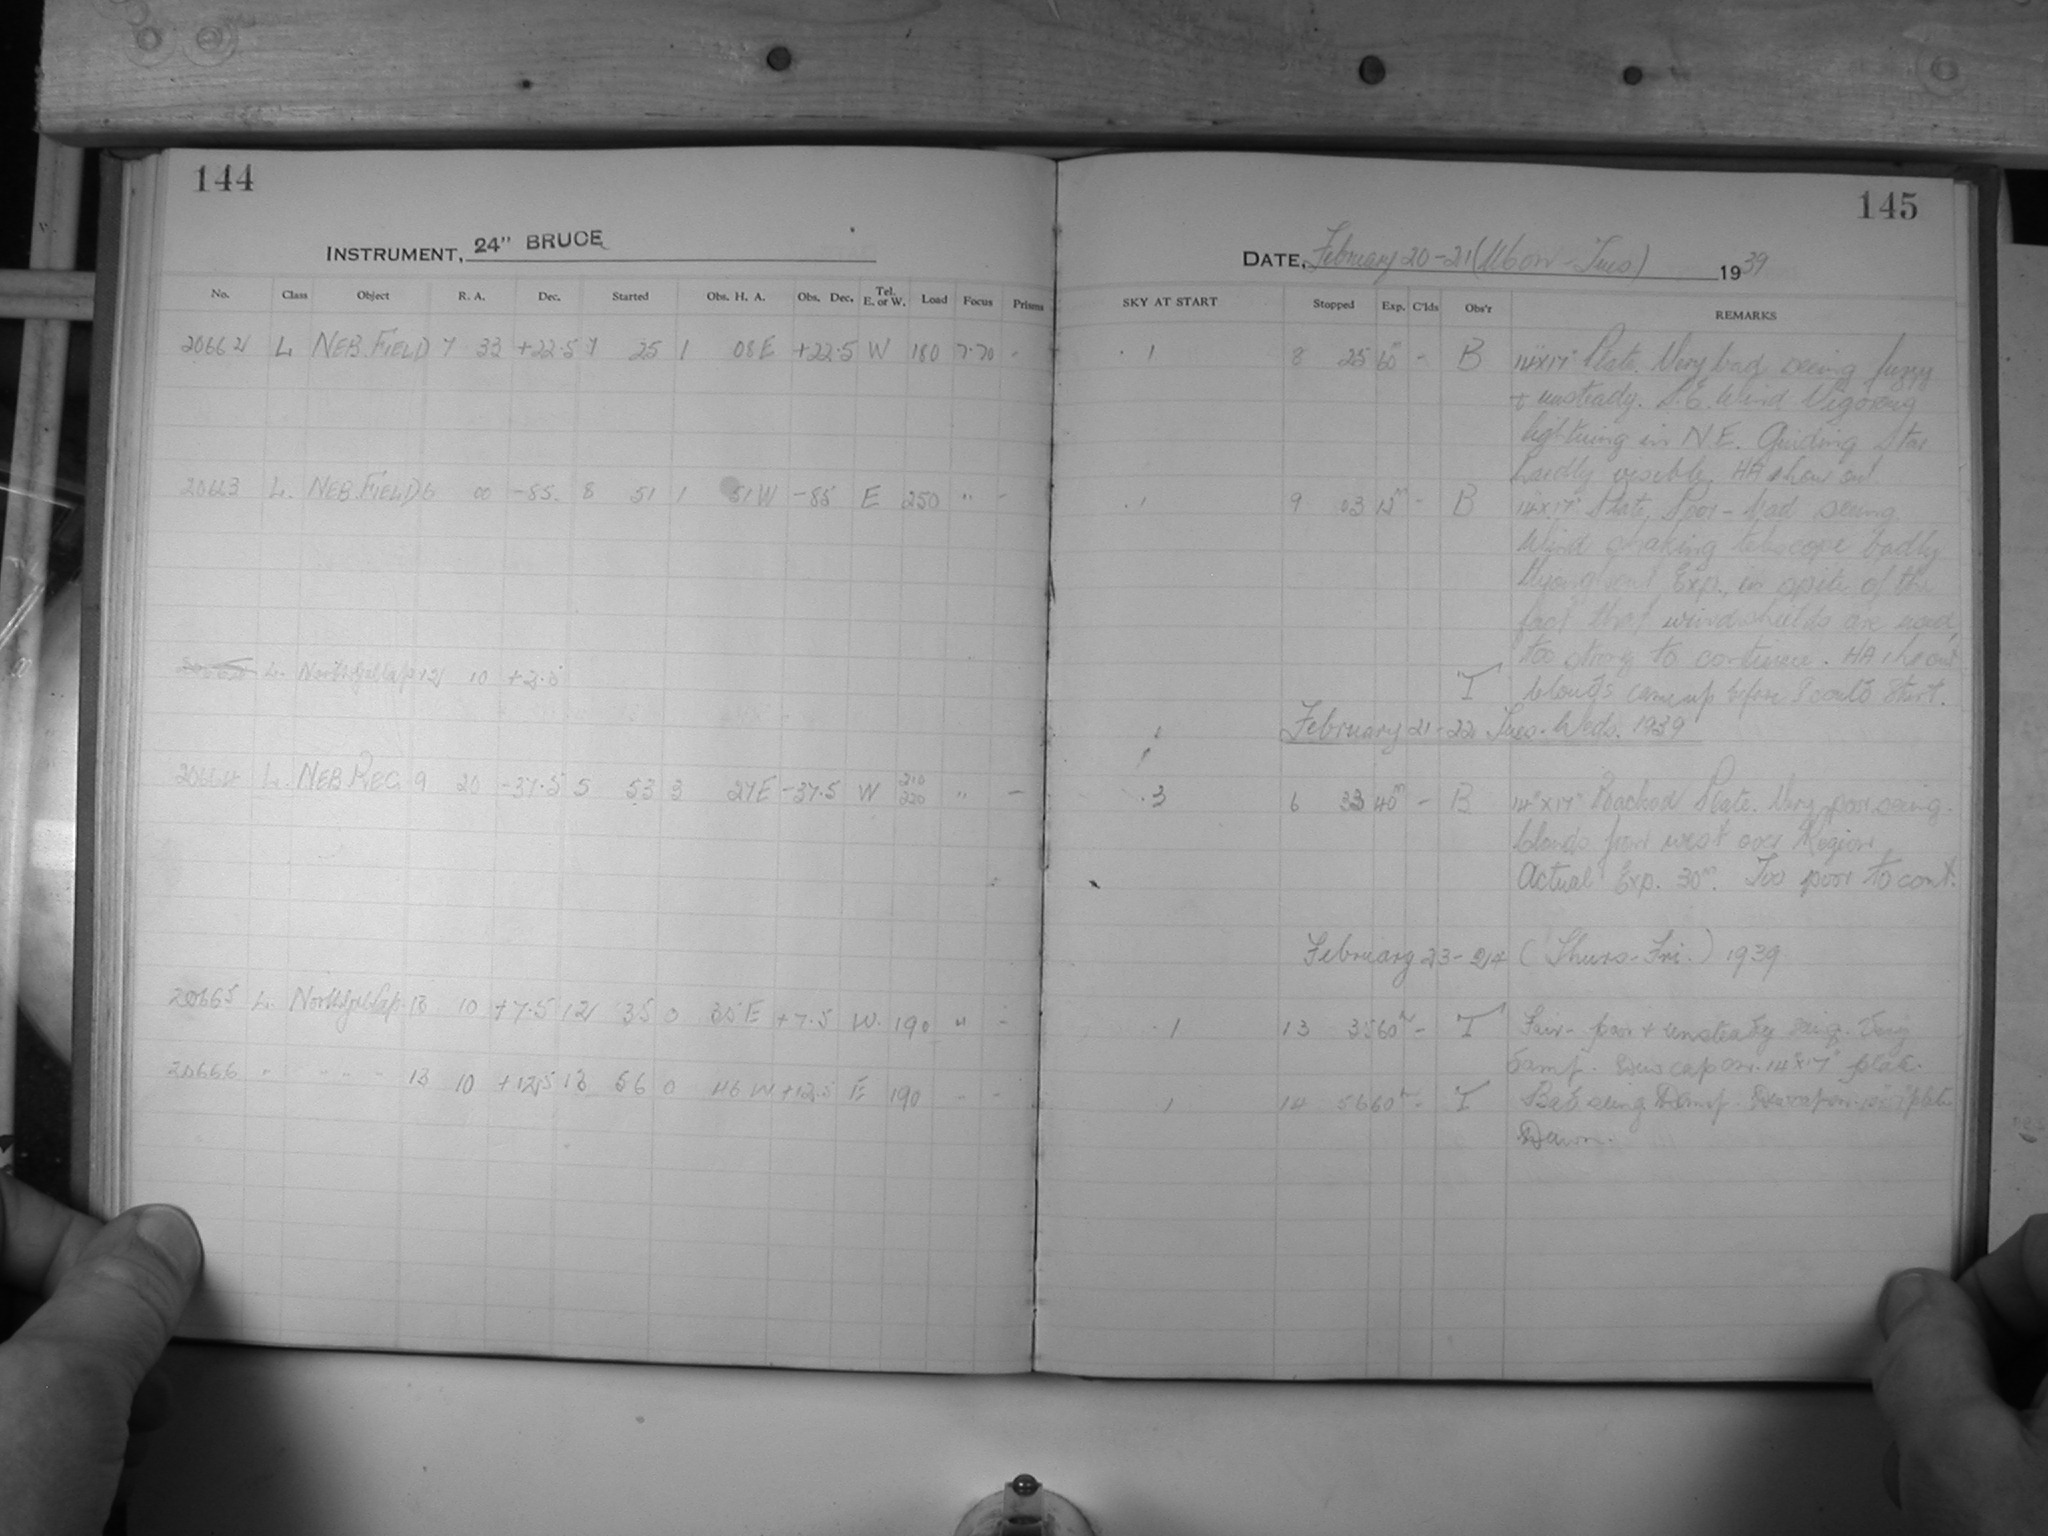 144
INSTRUMENT, 24" BRUCE
No. Class Object R. A. Dec. Started Obs. H. A. Obs. Dec. Tel. E. or W. Load Focus Prisms
20662 L NEB. FIELD 7 33 +22.5 7 25 1 08 E +22.5 W 180 7.70 -
20663 L. NEB. FIELD 6 00 -85. 8 51 1 51 W -85 E 250 " -
L. 12 10 +2.5
20664 L. NEB REG. 9 20 -37.5 5 53 3 27 E -37.5 W 210 220 " -
20665 L. North Gal Cap. 13 10 +7.5 12 35 0 35 E +7.5 W. 190 " -
20666 " " " - 13 10 +12.5 13 56 0 46 W +12.5 E 190 - -
145
DATE, February 20-21 (Mon - Tues) 1939
SKY AT START Stopped Exp. C'lds Obs'r REMARKS
1 8 25 60m - B 14"x17" Plate. Very bad seeing fuzzy
+ unsteady. S.E. Wind
lightning in N.E. Guiding Star
hardly visible. HA 1 hour out
1 9 03 12m - B 14x17" Plate, Poor - bad seeing
Wind shaking telescope badly
throughout Exp., in spite of the
fact that windshields are used,
too strong to continue. HA 1 hr out
T Clouds came up before I could start.
1 February 21-22 Tues. Weds. 1939
.3 6 33 40m - B 14"x17" Plate. Very poor seeing.
Clouds from west over Region
Actual Exp. 30m. Too poor to cont.
February 23-24 (Thurs-Fri.) 1939
1 13 35 60m - T Fair - poor + unsteady seeing. Very
damp. Dewcap on. 14"x17" plate.
1 14 56 60m - T Bad seeing Damp. Dewcap on. plate
Dawn.